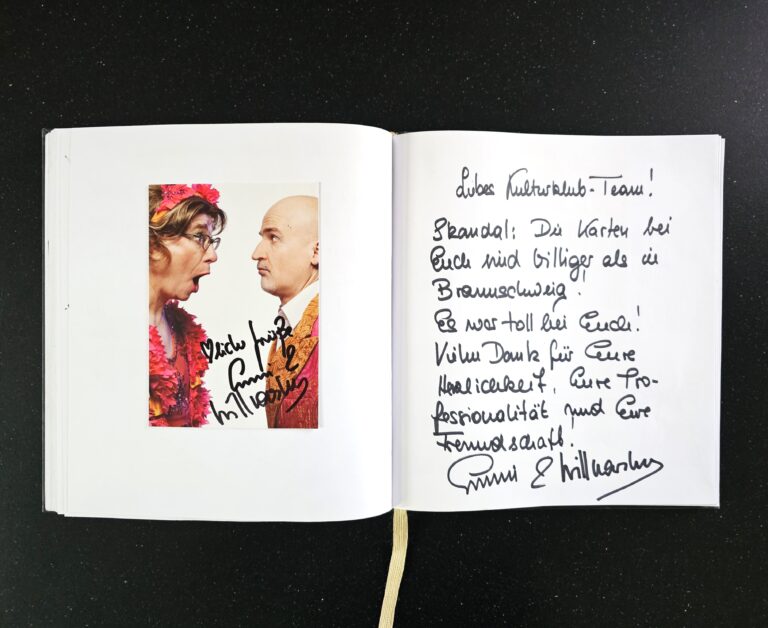 ♥liche Grüße
Emmi &
Willnowsky
Liebes Kulturklub-Team!
Skandal: Die Karten bei
Euch sind billiger als in
Braunschweig!
Es war toll bei Euch!
Vielen Dank für Eure
Herzlichkeit, Eure Pro-
fessionalität und Eure
Freundschaft.
Emmi & Willnowsky